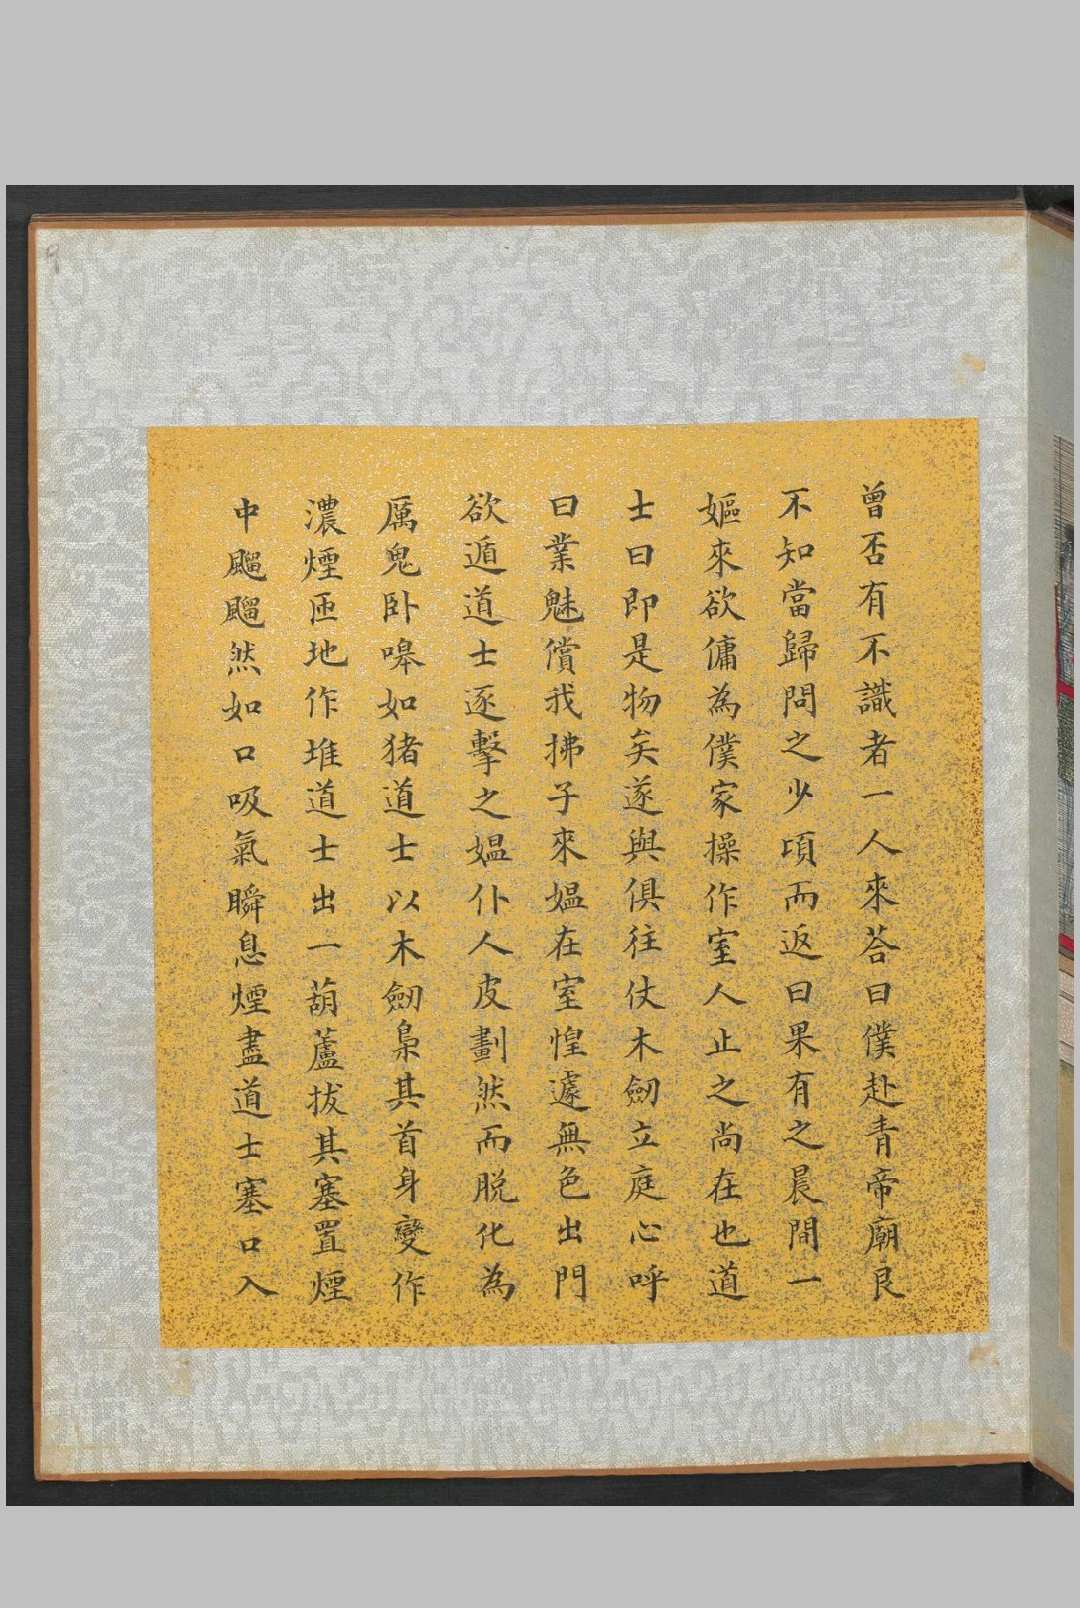 曾否有不識者一人來荅曰僕赴青帝廟良
不知當歸問之少頃而返曰果有之晨間一
嫗來欲傭為僕家操作室人止之尚在也道
士曰即是物矣遂與俱往仗木劒立庭心呼
曰業魅償我拂子來媼在室惶遽無色出門
欲遁道士逐擊之媼仆人皮劃然而脱化為
厲鬼卧嗥如猪道士以木劒梟其首身變作
濃煙匝地作堆道士出一葫蘆拔其塞置煙
中飀飀然如口吸氣瞬息煙盡道士塞口入